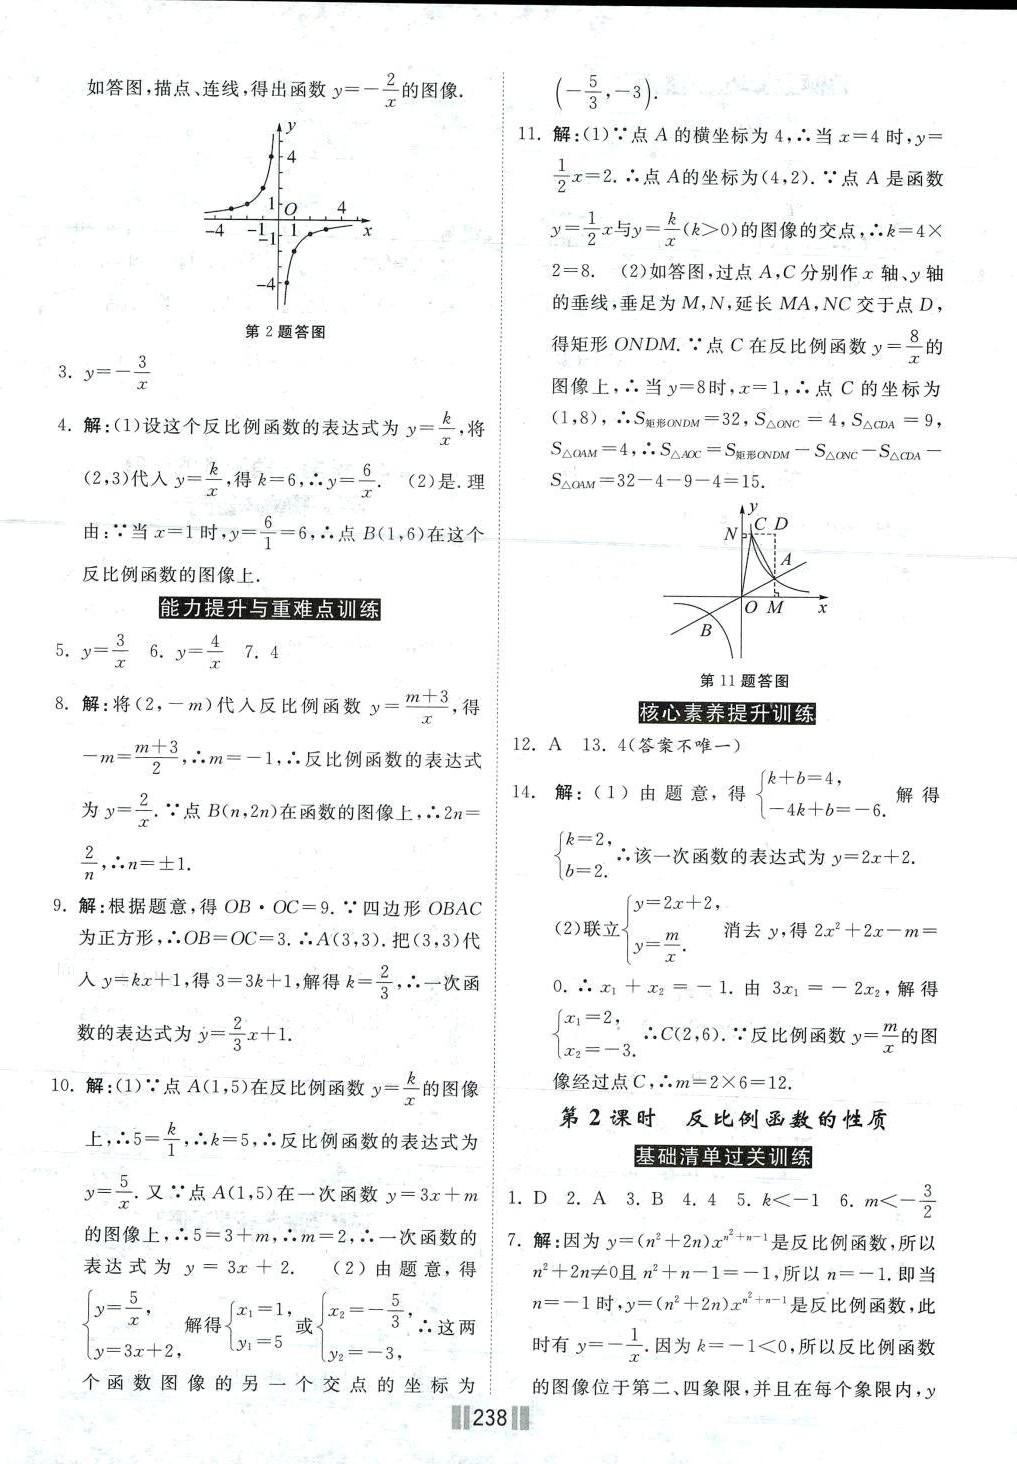 如答图,描点、连线,得出函数 y=-2/x 的图像.
y
4
1
O
4
-4
-1
1
-1
x
-4
第 2 题答图
3. y=-3/x
4. 解:(1)设这个反比例函数的表达式为 y=k/x,将
(2,3)代入 y=k/x,得 k=6,∴y=6/x. (2)是.理
由:∵当 x=1 时,y=6/1=6,∴点 B(1,6)在这个
反比例函数的图像上.
能力提升与重难点训练
5. y=3/x 6. y=4/x 7. 4
8. 解:将(2,-m)代入反比例函数 y=(m+3)/x,得
-m=(m+3)/2,∴m=-1,∴反比例函数的表达式
为 y=2/x.∵点 B(n,2n)在函数的图像上,∴2n=
2/n,∴n=±1.
9. 解:根据题意,得 OB·OC=9.∵四边形 OBAC
为正方形,∴OB=OC=3.∴A(3,3).把(3,3)代
入 y=kx+1,得 3=3k+1,解得 k=2/3,∴一次函
数的表达式为 y=2/3x+1.
10. 解:(1)∵点 A(1,5)在反比例函数 y=k/x的图像
上,∴5=k/1,∴k=5,∴反比例函数的表达式为
y=5/x.又∵点 A(1,5)在一次函数 y=3x+m
的图像上,∴5=3+m,∴m=2,∴一次函数的
表达式为 y=3x+2. (2)由题意,得
{y=5/x, y=3x+2, 解得{x₁=1, y₁=5 或{x₂=-5/3, y₂=-3, ∴这两
个函数图像的另一个交点的坐标为
(-5/3,-3).
11. 解:(1)∵点 A 的横坐标为 4,∴当 x=4 时,y=
1/2x=2.∴点 A的坐标为(4,2).∵点 A 是函数
y=1/2x与y=k/x(k>0)的图像的交点,∴k=4×
2=8. (2)如答图,过点 A,C 分别作 x 轴、y 轴
的垂线,垂足为 M,N,延长 MA,NC 交于点 D,
得矩形 ONDM.∵点 C 在反比例函数 y=8/x的
图像上,∴当 y=8时,x=1,∴点 C 的坐标为
(1,8),∴S矩形ONDM=32,S△ONC=4,S△CDA=9,
S△OAM=4,∴S△AOC=S矩形ONDM-S△ONC-S△CDA-
S△OAM=32-4-9-4=15.
y
N
C D
A
O M
x
B
第 11 题答图
核心素养提升训练
12. A 13. 4(答案不唯一)
14. 解:(1)由题意,得{k+b=4, -4k+b=-6. 解得
{k=2, b=2. ∴该一次函数的表达式为 y=2x+2.
(2)联立{y=2x+2, y=m/x. 消去 y,得 2x²+2x-m=
0.∴x₁+x₂=-1.由 3x₁=-2x₂,解得
{x₁=2, x₂=-3. ∴C(2,6).∵反比例函数 y=m/x的图
像经过点 C,∴m=2×6=12.
第 2 课时 反比例函数的性质
基础清单过关训练
1. D 2. A 3. B 4. 4 5. k<-1 6. m<-3/2
7. 解:因为 y=(n²+2n)x^(n²+n-1)是反比例函数,所以
n²+2n≠0且 n²+n-1=-1,所以 n=-1.即当
n=-1 时,y=(n²+2n)x^(n²+n-1)是反比例函数,此
时有 y=-1/x.因为 k=-1<0,所以反比例函数
的图像位于第二、四象限,并且在每个象限内,y
238